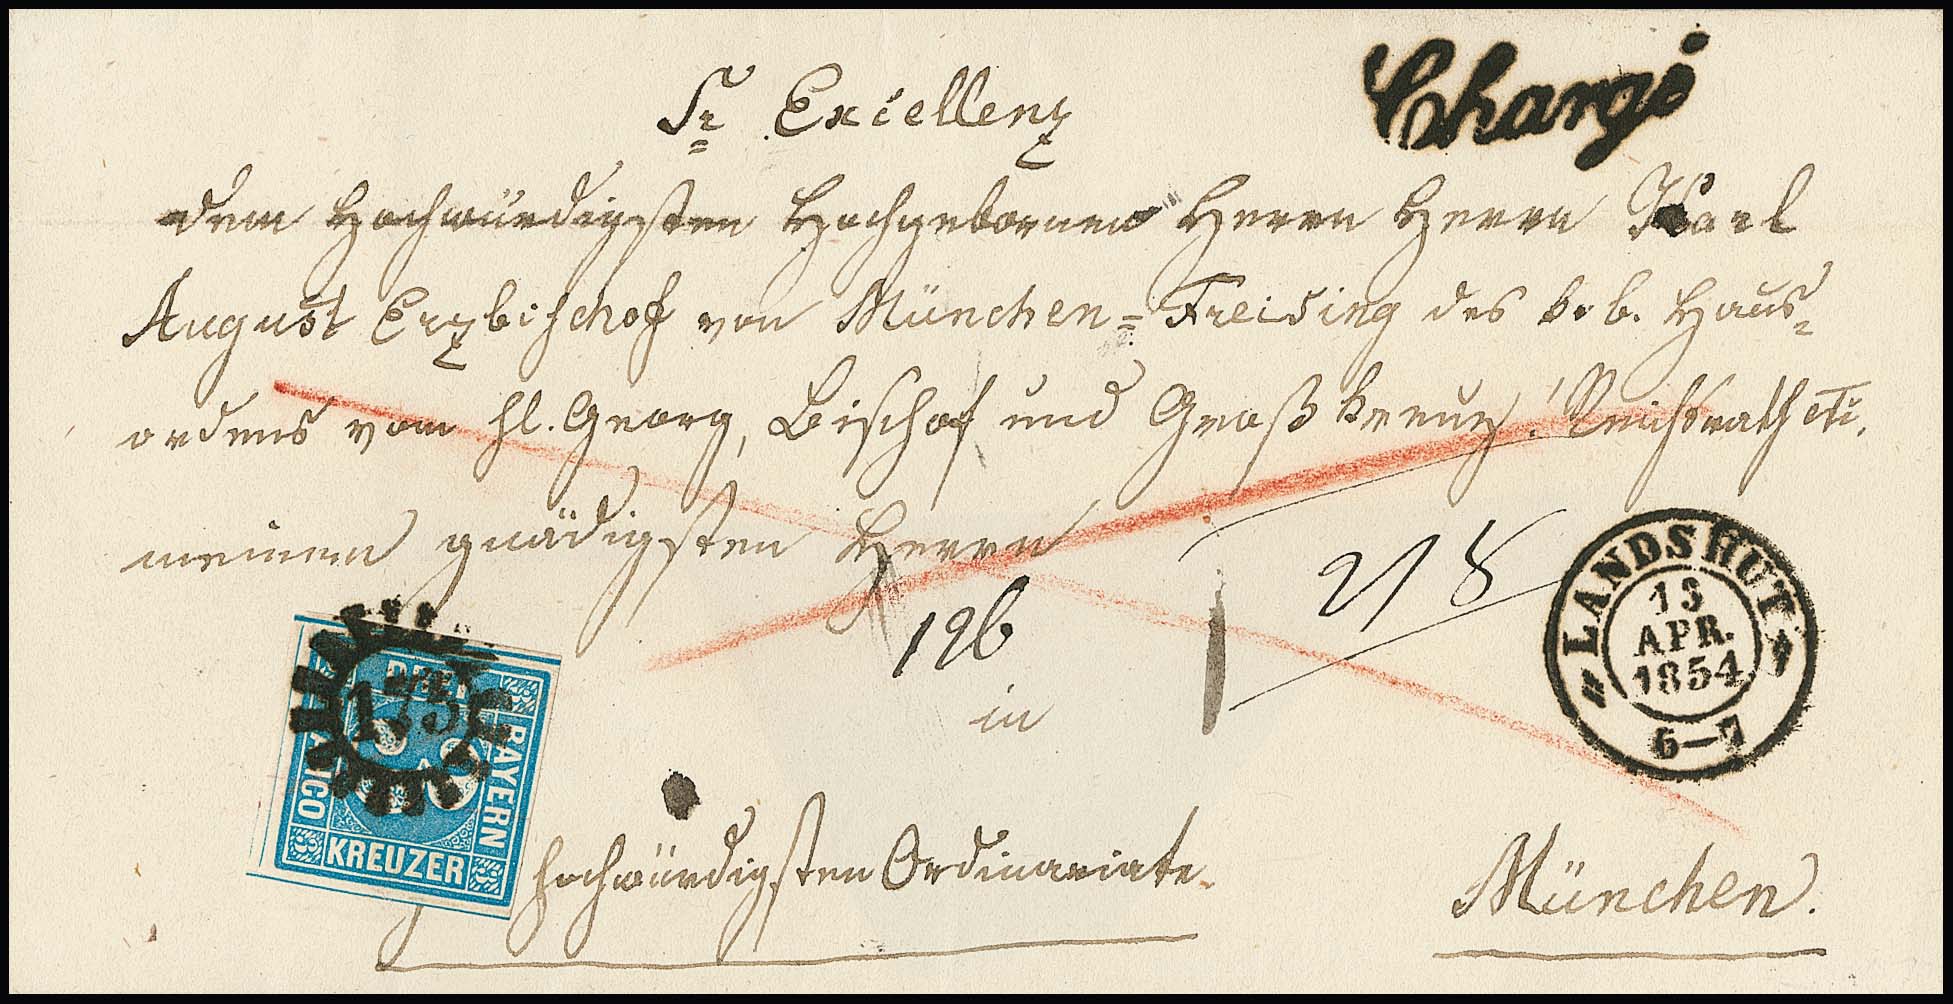 Chargé
Sr Excellenz
dem Hochwürdigsten Hochgebornen Herrn Herrn Karl
August Erzbischof von München=Freising des k. b. Haus-
ordens vom hl. Georg, Bischof und Großkreuz, Reichsrath etc.
meinem gnädigsten Herrn
218
196
in
LANDSHUT
13
APR.
1854
6-7
175
DREI
BAYERN
FRANCO
KREUZER
hochwürdigsten Ordinariate.
München.